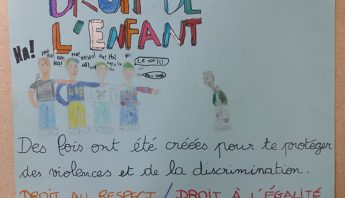 DROIT DE
L'ENFANT
HA!
Des fois ont été créées pour te protéger
des violences et de la discrimination.
DROIT AU RESPECT / DROIT À L'ÉGALITÉ